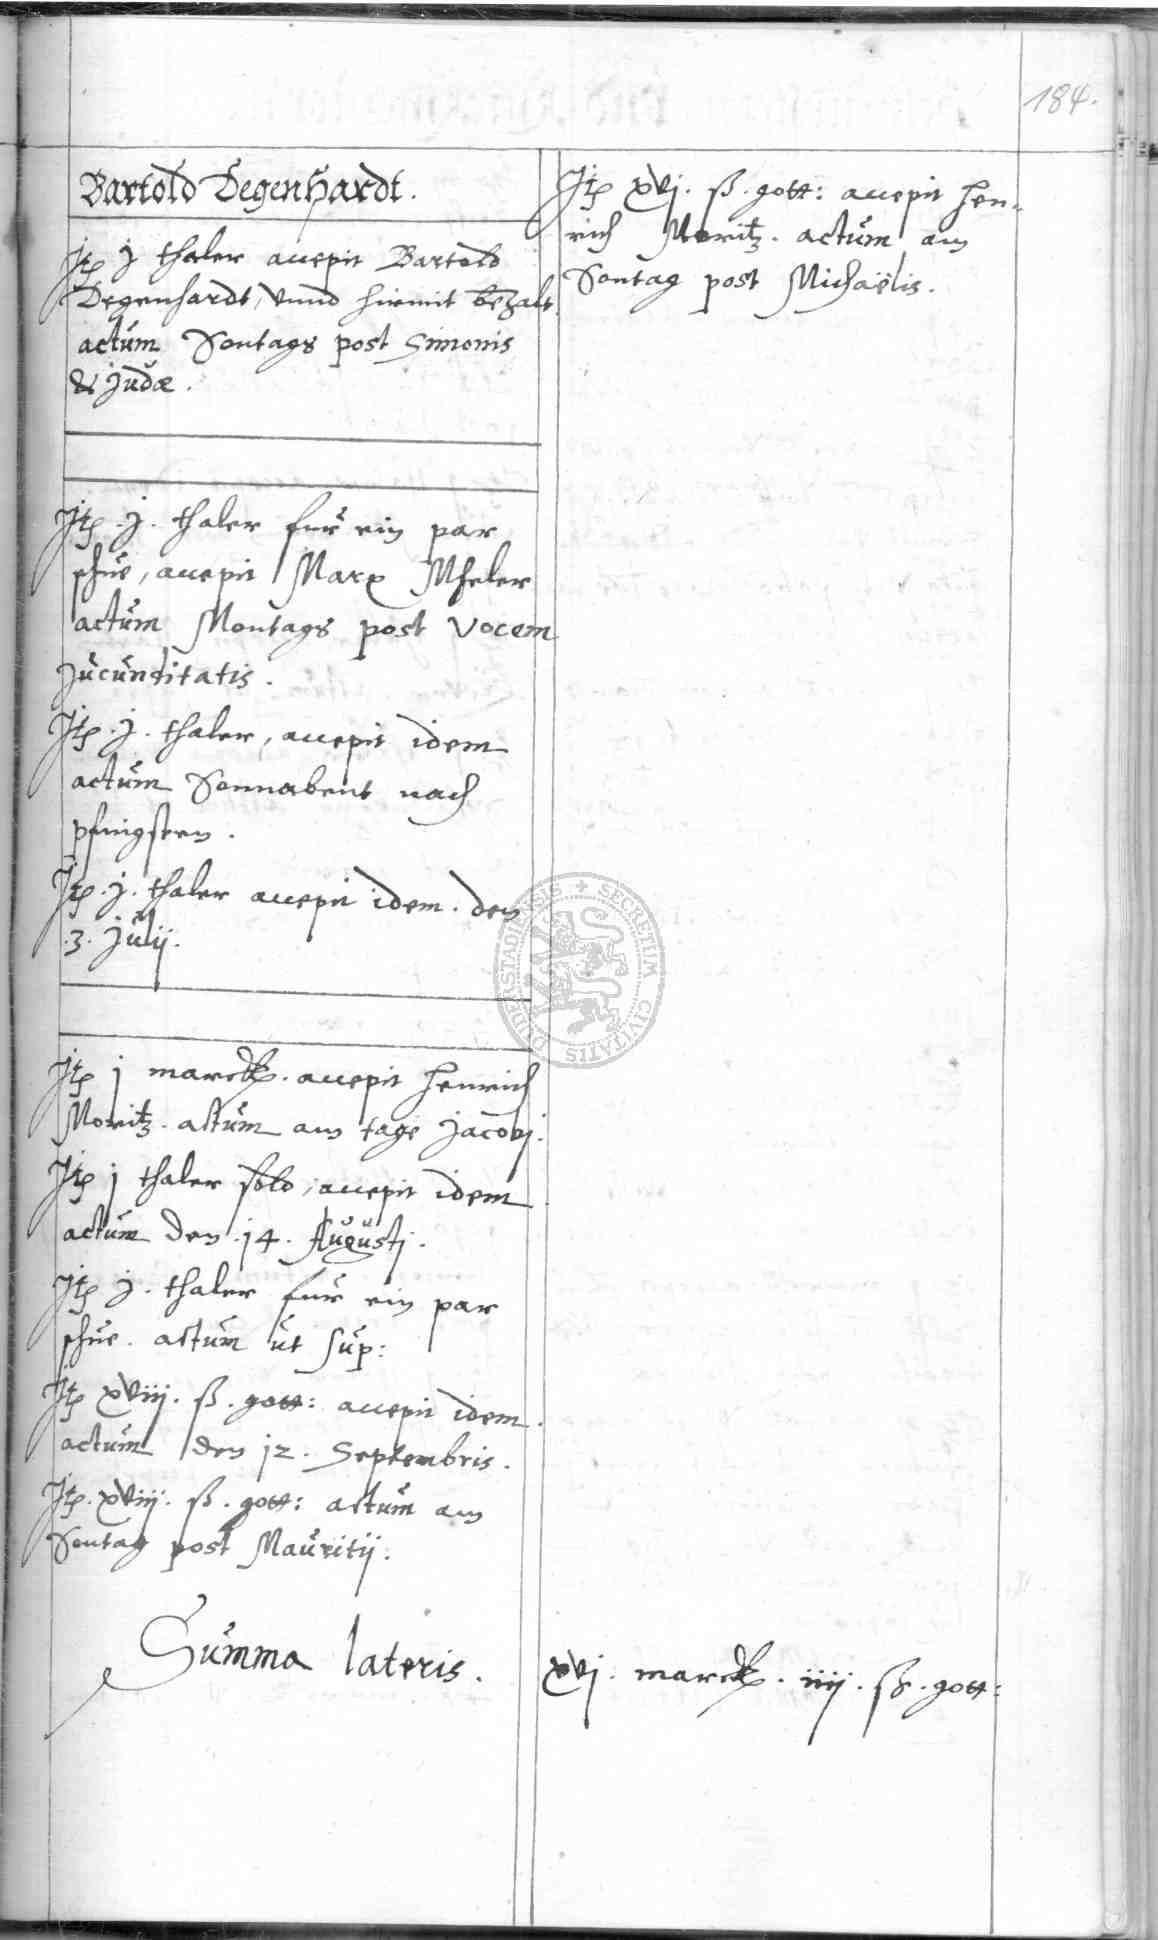 184.
Bartold Degenhardt.
Itē j thaler accepit Bartold
Degenhardt, vnnd hiemit bezalt.
actum Sontags post Simonis
& Judæ.
Itē .j. thaler fur ein par
schue, accepit Marx Mheler
actum Montags post Vocem
Jucunditatis.
Itē .j. thaler, accepit idem
actum Sonnabent nach
pfingsten.
Itē .j. thaler accepit idem. den
.3. Julij.
Itē j marck. accepit Henrich
Moritz. actum am tage Jacobj.
Itē j thaler sold, accepit idem
actum den .14. Augustj.
Itē j. thaler fur ein par
schue. actum ut sup:
Itē xviij. ß. gott: accepit idem.
actum den 12. Septembris.
Itē. xviij. ß. gott: actum am
Sontag post Mauritij.
Itē xvj. ß. gott: accepit Hen-
rich Moritz. actum am
Sontag post Michaëlis.
Summa lateris. xvj. marck. iiij. ß. gott:
SECRETUM CIVITATIS DUDERSTADIENSIS